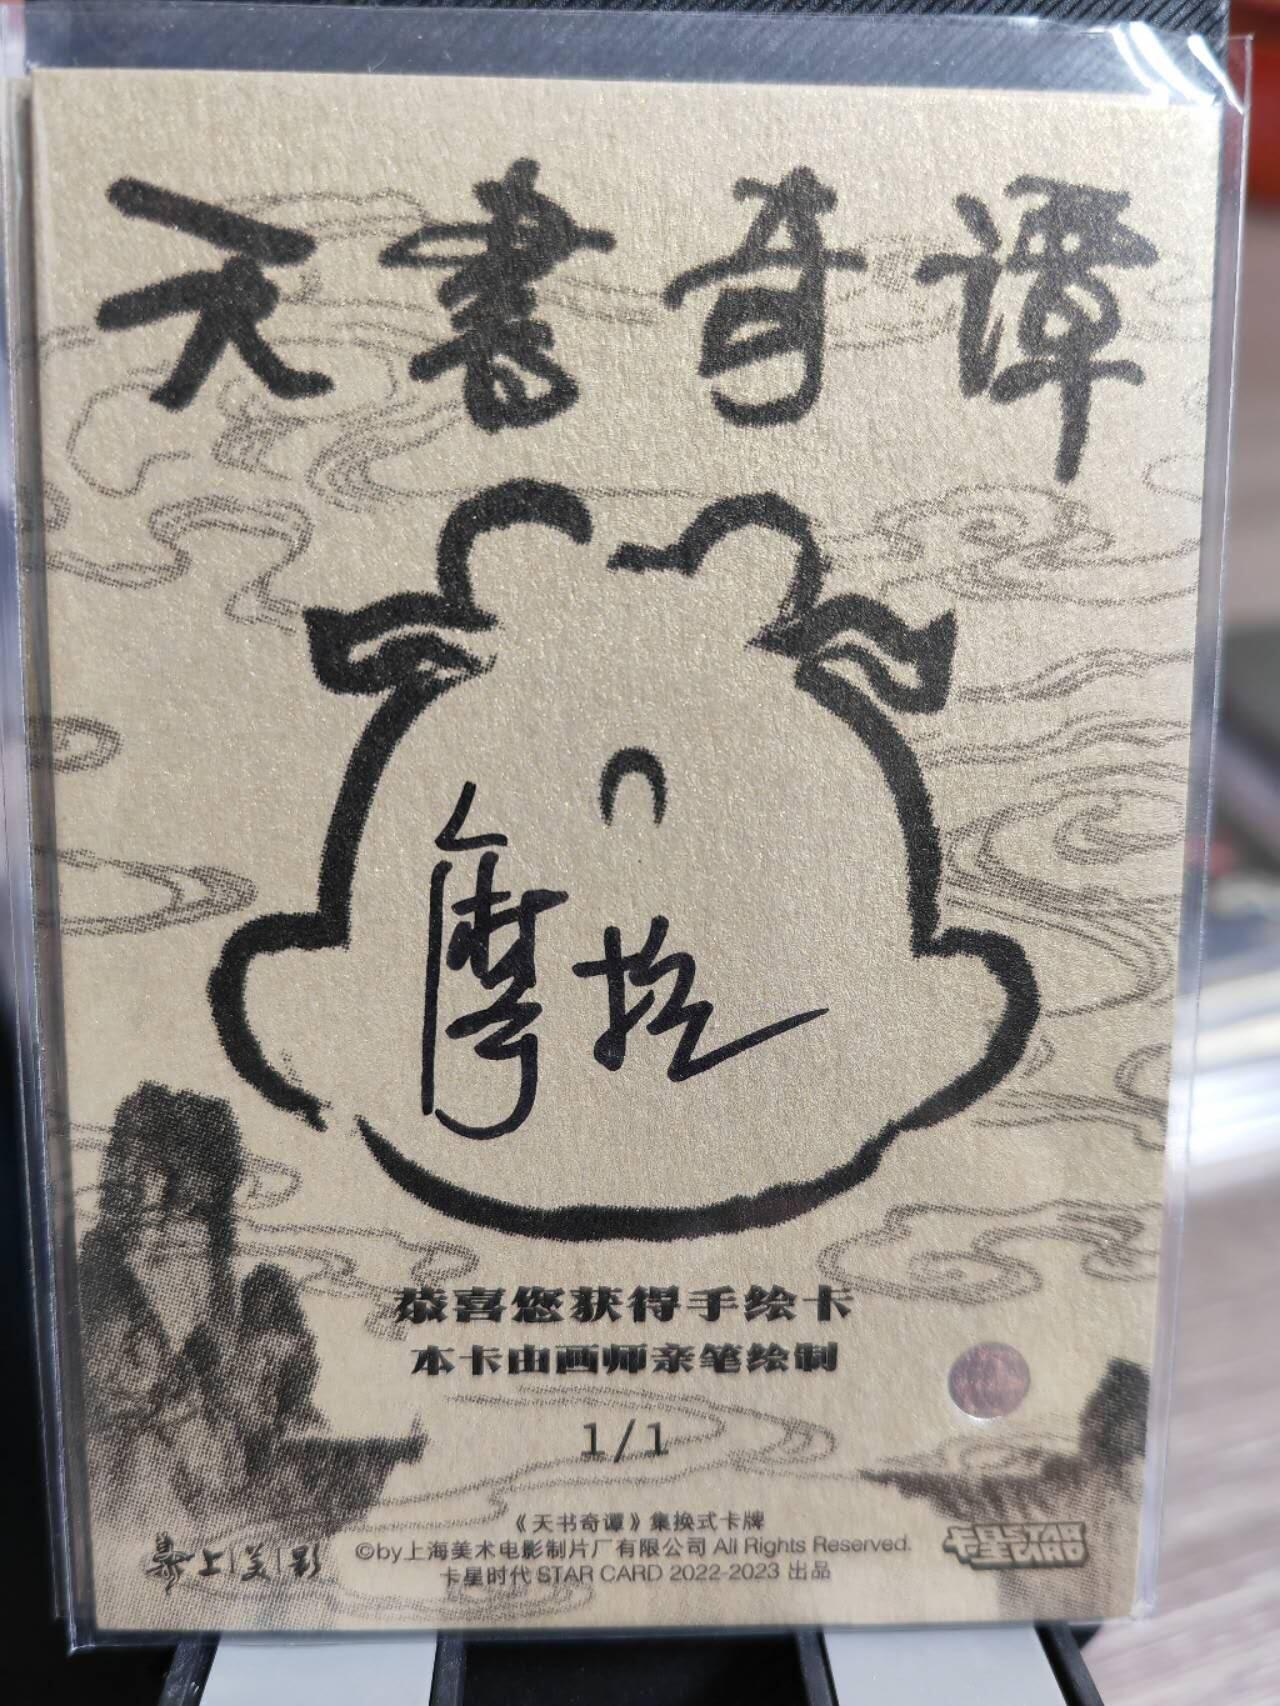 天書奇谭
恭喜您获得手绘卡
本卡由画师亲笔绘制
1/1
《天书奇谭》集换式卡牌
©by上海美术电影制片厂有限公司 All Rights Reserved.
卡星时代 STAR CARD 2022-2023 出品
上美影
卡星STAR
卡星CARD